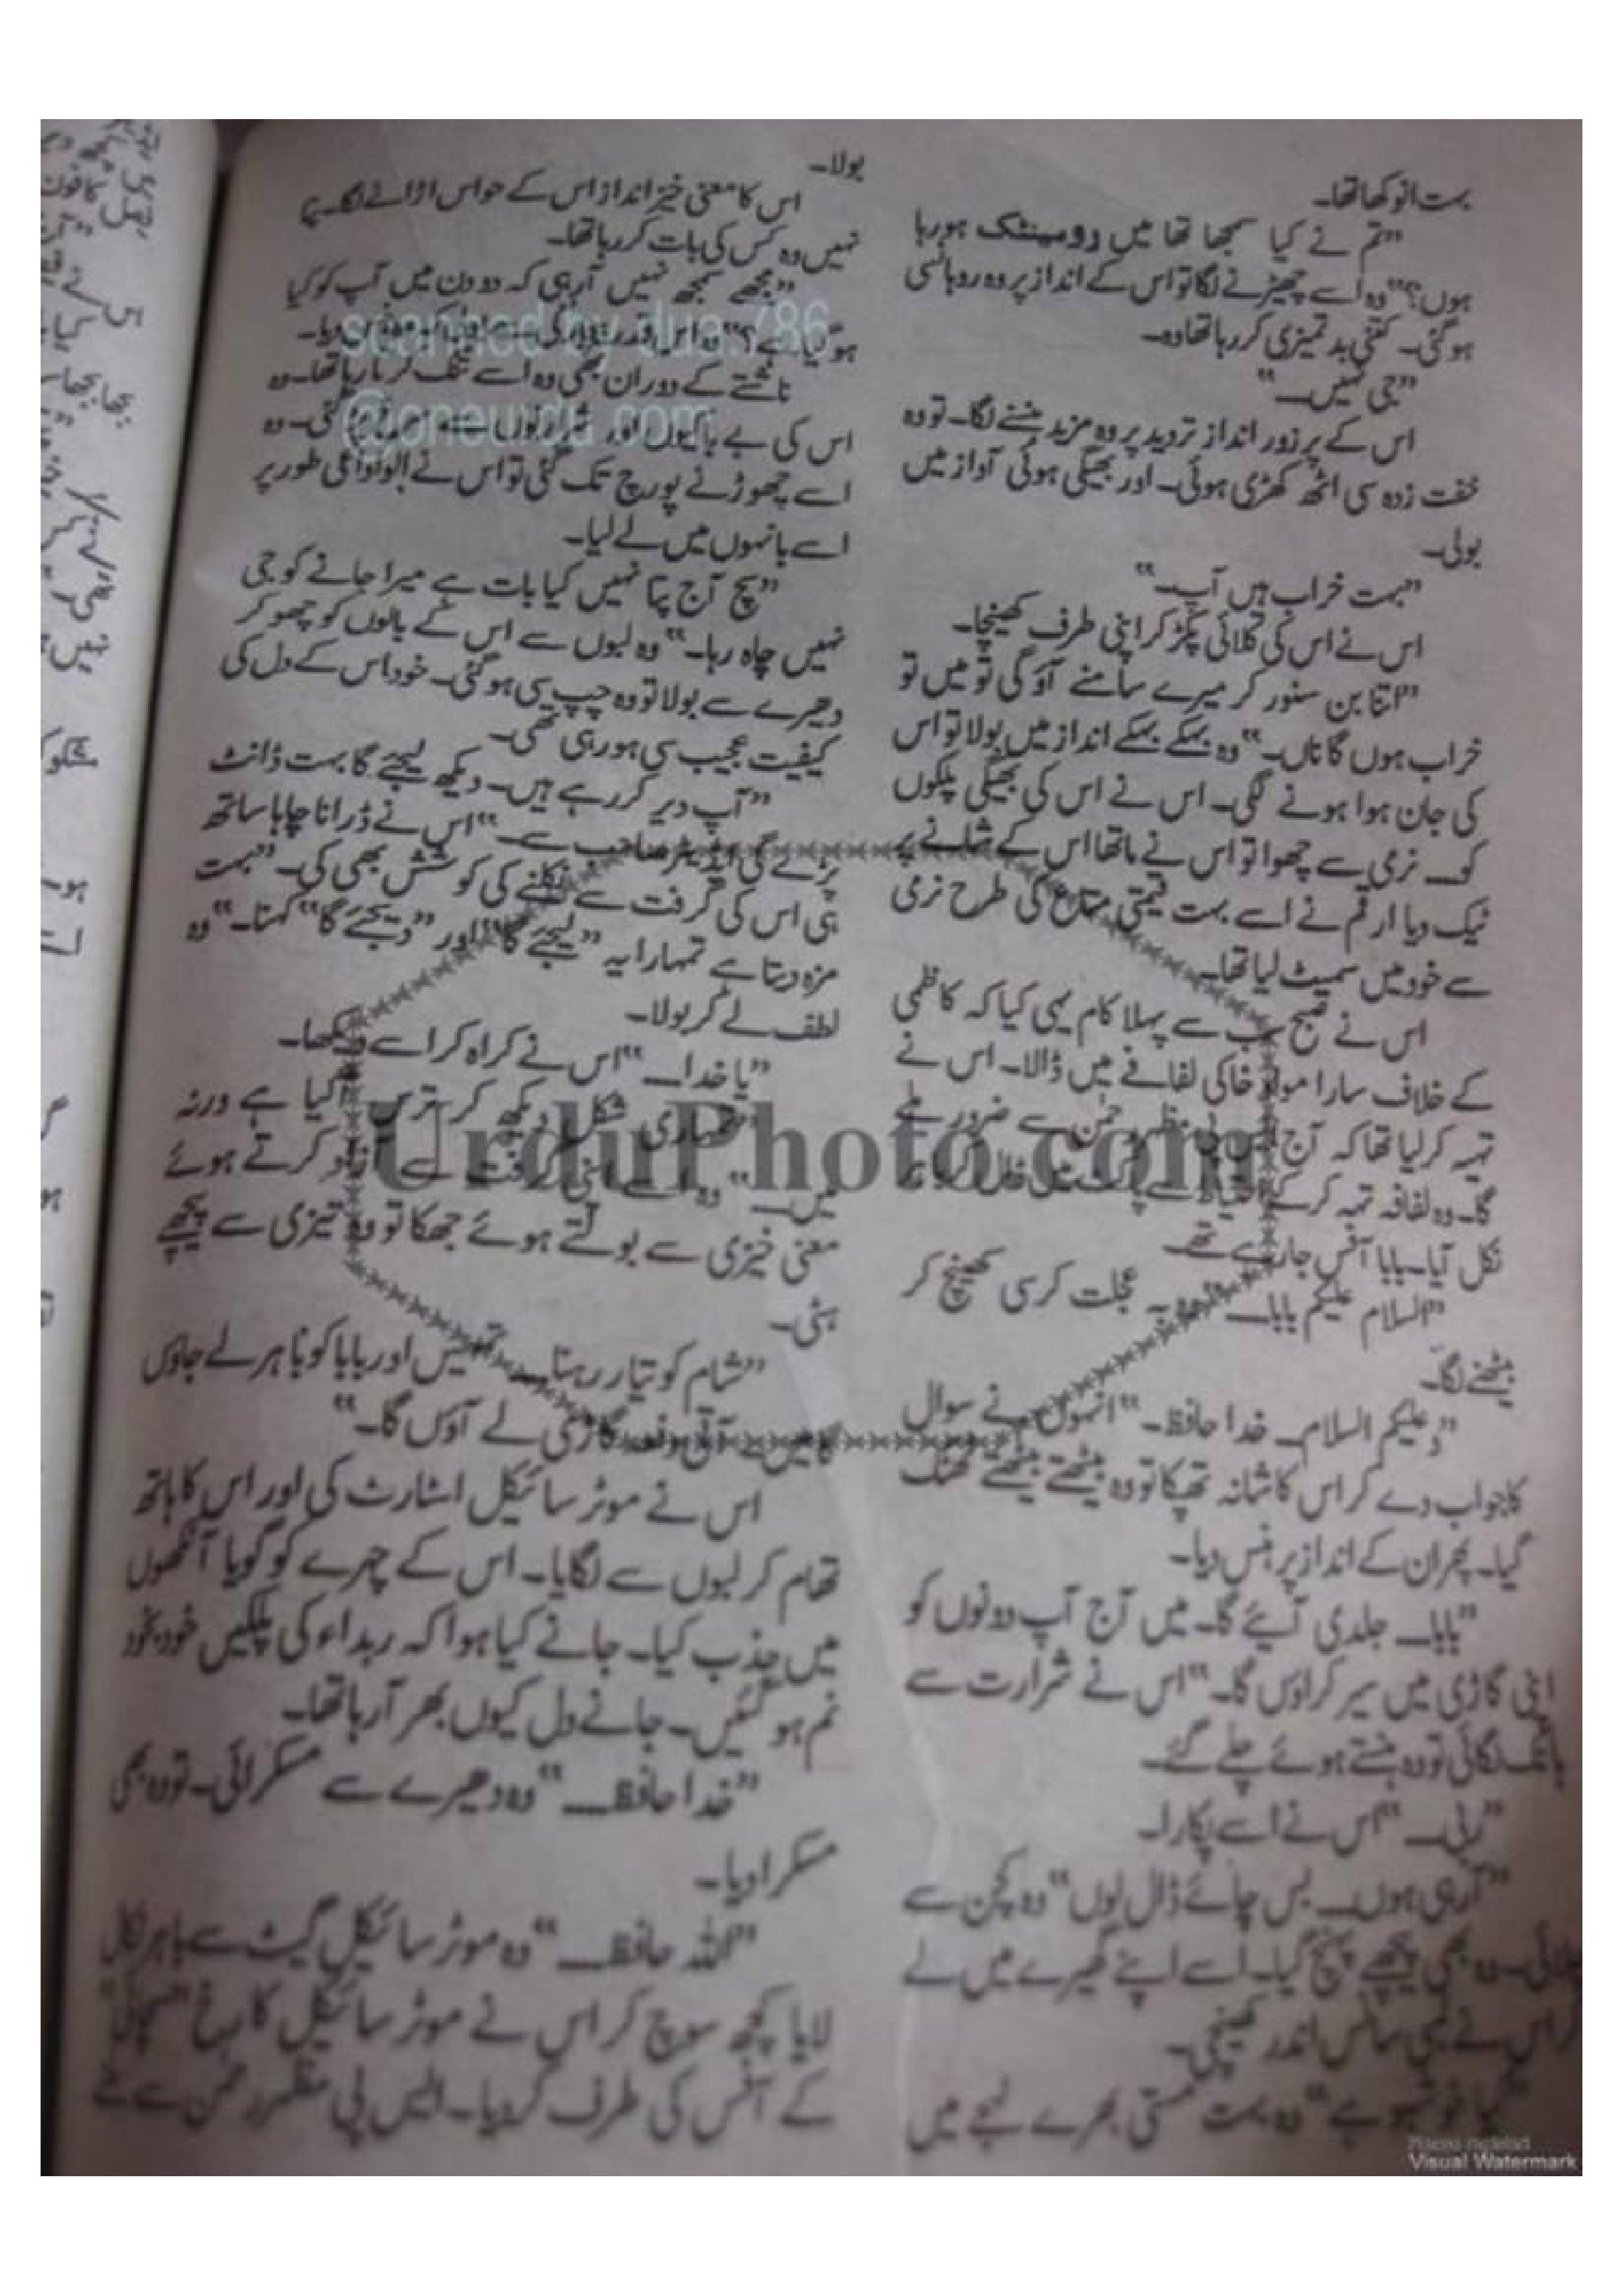 بہت انوکھا تھا۔
”تم نے کیا سمجھا تھا میں رومینٹک ہو رہا
ہوں؟“ وہ اسے چھیڑنے لگا تو اس کے انداز پر وہ روہانسی
ہو گئی۔ کتنی بدتمیزی کر رہا تھا وہ۔
”جی نہیں۔“
اس کے پرزور انداز تردید پر وہ مزید ہنسنے لگا۔ تو وہ
خفت زدہ سی اٹھ کھڑی ہوئی۔ اور بھیگی ہوئی آواز میں
بولی۔
”بہت خراب ہیں آپ۔“
اس نے اس کی کلائی پکڑ کر اپنی طرف کھینچا۔
”اتنا بن سنور کر میرے سامنے آؤ گی تو میں تو
خراب ہوں گا ناں۔“ وہ بہکے بہکے انداز میں بولا تو اس
کی جان ہوا ہونے لگی۔ اس نے اس کی بھیگی پلکوں
کو نرمی سے چھوا تو اس نے ماتھا اس کے شانے پر
ٹیک دیا ارقم نے اسے بہت قیمتی متاع کی طرح نرمی
سے خود میں سمیٹ لیا تھا۔
اس نے صبح سب سے پہلا کام یہی کیا کہ کاظمی
کے خلاف سارا مواد خاکی لفافے میں ڈالا۔ اس نے
تہیہ کر لیا تھا کہ آج ایس پی مظہر رحمٰن سے ضرور ملے
گا۔ وہ لفافہ تہہ کر کے میں ڈال کر
نکل آیا۔ بابا آفس جا رہے تھے۔
”السلام علیکم بابا۔“ وہ بہ عجلت کرسی کھینچ کر
بیٹھنے لگا۔
”وعلیکم السلام۔ خدا حافظ۔“ انہوں نے سوال
کا جواب دے کر اس کا شانہ تھپکا تو وہ بیٹھتے بیٹھتے ٹھٹک
گیا۔ پھر ان کے انداز پر ہنس دیا۔
”بابا۔ جلدی آیئے گا۔ میں آج آپ دونوں کو
اپنی گاڑی میں سیر کراؤں گا۔“ اس نے شرارت سے
ہانک لگائی تو وہ ہنستے ہوئے چلے گئے۔
”ربی۔“ اس نے اسے پکارا۔
”آرہی ہوں۔ بس چائے ڈال لوں“ وہ کچن سے
چلائی۔ وہ بھی پیچھے پہنچ گیا۔ اسے اپنے گھیرے میں لے
کر اس نے لمبی سانس اندر کھینچی۔
”کیا خوشبو ہے“ وہ بہت مستی بھرے لہجے میں
بولا۔
اس کا معنی خیز انداز اس کے حواس اڑانے لگا۔ پتا
نہیں وہ کس کی بات کر رہا تھا۔
”مجھے سمجھ نہیں آرہی کہ دو دن میں آپ کو کیا
ہو گیا ہے؟“ وہ اس قدر دیا۔
ناشتے کے دوران بھی وہ اسے تنگ کرتا رہا تھا۔ وہ
اس کی بے باکیوں اور شرارتوں سے گئی۔ وہ
اسے چھوڑنے پورچ تک گئی تو اس نے الوداعی طور پر
اسے بانہوں میں لے لیا۔
”سچ آج پتا نہیں کیا بات ہے میرا جانے کو جی
نہیں چاہ رہا۔“ وہ لبوں سے اس کے بالوں کو چھو کر
دھیرے سے بولا تو وہ چپ سی ہو گئی۔ خود اس کے دل کی
کیفیت عجیب سی ہو رہی تھی۔
”آپ دیر کر رہے ہیں۔ دیکھ لیجئے گا بہت ڈانٹ
پڑے گی ایڈیٹر صاحب سے۔“ اس نے ڈرانا چاہا ساتھ
ہی اس کی گرفت سے نکلنے کی کوشش بھی کی۔ ”بہت
مزہ دیتا ہے تمہارا یہ ”لیجئے گا“ اور ”دیجئے گا“ کہنا۔“ وہ
لطف لے کر بولا۔
”یا خدا۔“ اس نے کراہ کر اسے دیکھا۔
”تمہاری شکل دیکھ کر ترس آ گیا ہے ورنہ
میں۔“ وہ اسے اپنی گرفت سے آزاد کرتے ہوئے
معنی خیزی سے بولتے ہوئے جھکا تو وہ تیزی سے پیچھے
ہٹی۔
”شام کو تیار رہنا۔ تمہیں اور بابا کو باہر لے جاؤں
گا میں۔ آتی دفعہ گاڑی لے آؤں گا۔“
اس نے موٹر سائیکل اسٹارٹ کی اور اس کا ہاتھ
تھام کر لبوں سے لگایا۔ اس کے چہرے کو گویا آنکھوں
میں جذب کیا۔ جانے کیا ہوا کہ ربداء کی پلکیں خود بخود
نم ہو گئیں۔ جانے دل کیوں بھر آرہا تھا۔
”خدا حافظ۔“ وہ دھیرے سے مسکرائی۔ تو وہ بھی
مسکرا دیا۔
”اللہ حافظ۔“ وہ موٹر سائیکل گیٹ سے باہر نکال
لایا کچھ سوچ کر اس نے موٹر سائیکل کا رخ ”سچائی“
کے آفس کی طرف کر دیا۔ ایس پی مظہر رحمٰن سے ملنے
scanned by dua.786
@oneurdu.com
UrduPhoto.com
Visual Watermark